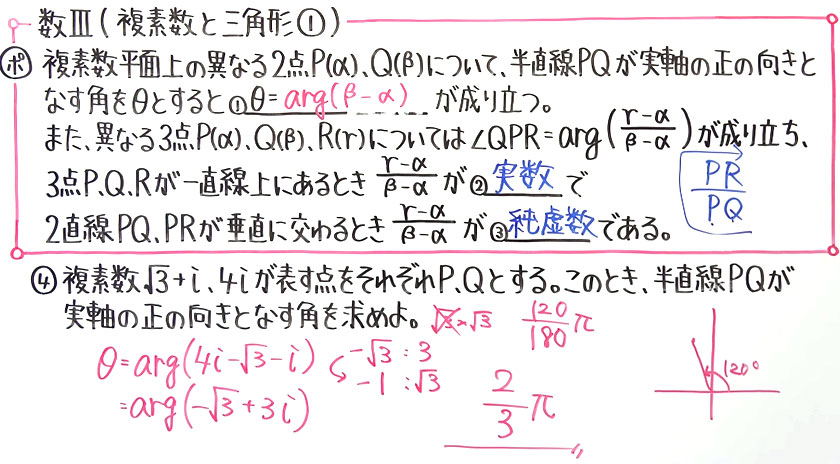 数Ⅲ(複素数と三角形①)
ポ 複素数平面上の異なる2点P(α)、Q(β)について、半直線PQが実軸の正の向きと
なす角をθとすると①θ=arg(β-α)が成り立つ。
また、異なる3点P(α)、Q(β)、R(γ)については∠QPR=arg(γ-α/β-α)が成り立ち、
3点P、Q、Rが一直線上にあるとき γ-α/β-α が②実数で
PR/PQ
2直線PQ、PRが垂直に交わるとき γ-α/β-α が③純虚数である。
④ 複素数√3+i、4iが表す点をそれぞれP、Qとする。このとき、半直線PQが
実軸の正の向きとなす角を求めよ。
×√3 120/180π
θ=arg(4i-√3-i)
=arg(-√3+3i)
-√3:3
-1:√3
2/3π
120°